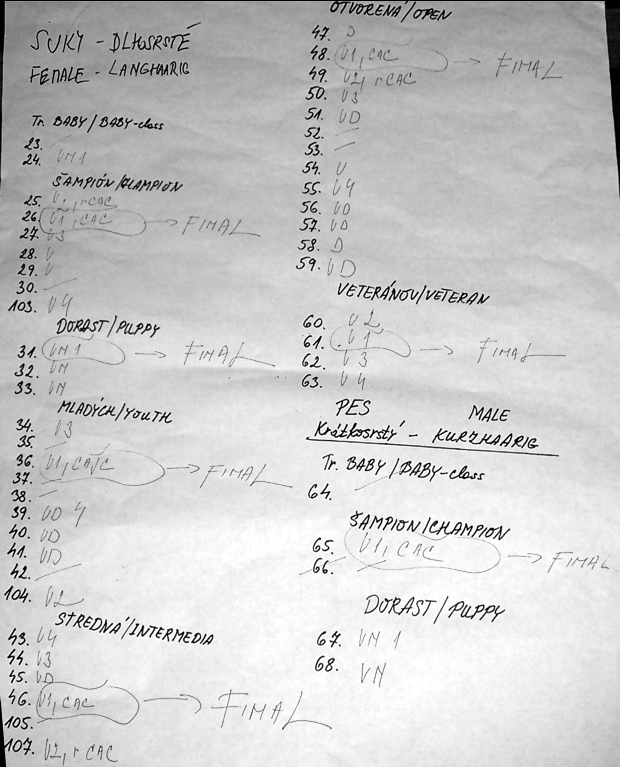 SUKY - DLHOSRSTÉ
FEMALE - LANGHAARIG
Tr. BABY/BABY-class
23.
24. VN1
ŠAMPIÓN/CHAMPION
25. V2, rCAC
26. V1, CAC → FINAL
27. V3
28. V
29. V
30. —
103. V4
DORAST/PUPPY
31. VN 1 → FINAL
32. VN
33. VN
MLADÝCH/YOUTH
34. V3
35. —
36. V1, CAJC → FINAL
37. —
38. —
39. VD 4
40. VD
41. VD
42. —
104. V2
STREDNÁ/INTERMEDIA
43. V4
44. V3
45. VD
46. V1, CAC → FINAL
105. —
107. V2, r CAC
OTVORENÁ/OPEN
47. D
48. V1, CAC → FINAL
49. V2, r CAC
50. V3
51. VD
52. —
53. —
54. V
55. V4
56. VD
57. VD
58. D
59. VD
VETERÁNOV/VETERAN
60. V2
61. V1 → FINAL
62. V3
63. V4
PES MALE
Krátkosrstý - KURZHAARIG
Tr. BABY/BABY-class
64. —
ŠAMPION/CHAMPION
65. V1, CAC → FINAL
66. —
DORAST/PUPPY
67. VN 1
68. VN